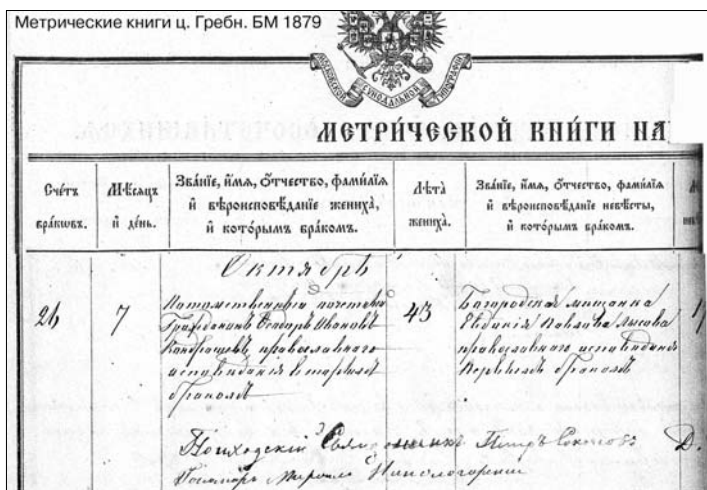 Метрические книги ц. Гребн. БМ 1879
МОСКОВСКОЙ СѴНОДАЛЬНОЙ ТИПОГРАФІИ
МЕТРИ́ЧЕСКОЙ КНИ́ГИ НА
Сче́тъ
бра́ковъ.
Мѣ́сяцъ
и҆ де́нь.
Зва́нїе, и҆́мѧ, ѻ҆́тчество, фами́лїѧ
и҆ вѣроисповѣ́данїе жениха̀,
и҆ кото́рымъ бра́комъ.
Лѣта̀
жениха̀.
Зва́нїе, и҆́мѧ, ѻ҆́тчество, фами́лїѧ
и҆ вѣроисповѣ́данїе невѣ́сты,
и҆ кото́рымъ бра́комъ.
Октябрь
26
7
Потомственный почетный
Гражданинъ Федоръ Ивановъ
Кондрашевъ, православнаго
исповѣданія
бракомъ
43
Богородская мещанка
Евданія Павлова Лысова
православнаго исповѣданія
Первымъ бракомъ
Приходскій Священникъ Петръ